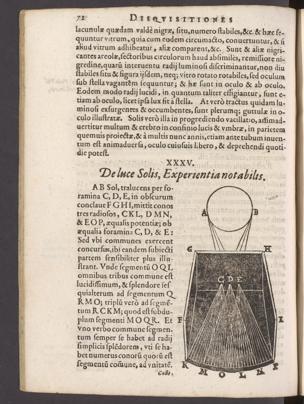 72 DISQVISITIONES
lacunulæ quædam valdè nigræ, situ, numero stabiles, &c. & hæc se-
quuntur vitrum, quia cum eodem circumacto, conuertuntur, & si
aliud vitrum adhibeatur, aliæ comparent, &c. Sunt & aliæ nigri-
cantes areolæ, sectoribus circulorum haud absimiles, remissiore ni-
gredine,
stabiles situ & figura ijsdem, neq; vitro rotato rotabiles, sed oculum
sub stella vagantem sequuntur; & hæ sunt in oculo & ab oculo.
Eodem modo radij lucidi, in quantum taliter effigiantur, sunt e-
tiam ab oculo, licet ipsa lux sit à stella. At verò tractus quidam lu-
minosi exsurgentes & occumbentes, sunt plerumq; guttulæ in o-
culo illustratæ. Solis verò illa in progrediendo vacillatio, æstimad-
uertitur multùm & crebrò in consinuo lucis & vmbræ, in parietem
quempiam proiectæ, & à multis nunc annis, etiam ante tubum inuen-
tum est animaduersa, oculo cuiusuis libero, & deprehendi quoti-
die potest.
XXXV.
De luce Solis, Experientia notabilis.
AB Sol, tralucens per fo-
ramina C, D, E, in obscurum
conclaue F G H I, mittit conos
tres radiosos, C K L, D M N,
& E O P, æqualis potentiæ; ob
æqualia foramina C, D, & E:
Sed vbi communes exercent
concursus, ibi eandem subiecti
partem sensibiliter plus illu-
strant. Vnde segmentũ O Q L
omnibus tribus commune est
lucidissimum, & splendore ses-
quialterum ad segmentum Q
R M O; triplũ verò ad segmẽ-
tum R C K M; quod est subdu-
plum segmenti M O Q R. Et
vno verbo commune segmen-
tum semper se habet ad radij
simplicis splẽdorem, vti se ha-
bet numerus conorũ quorũ est
segmentũ cõmune, ad vnitatẽ.
A B
G H
C D E
F I
K M O L N P